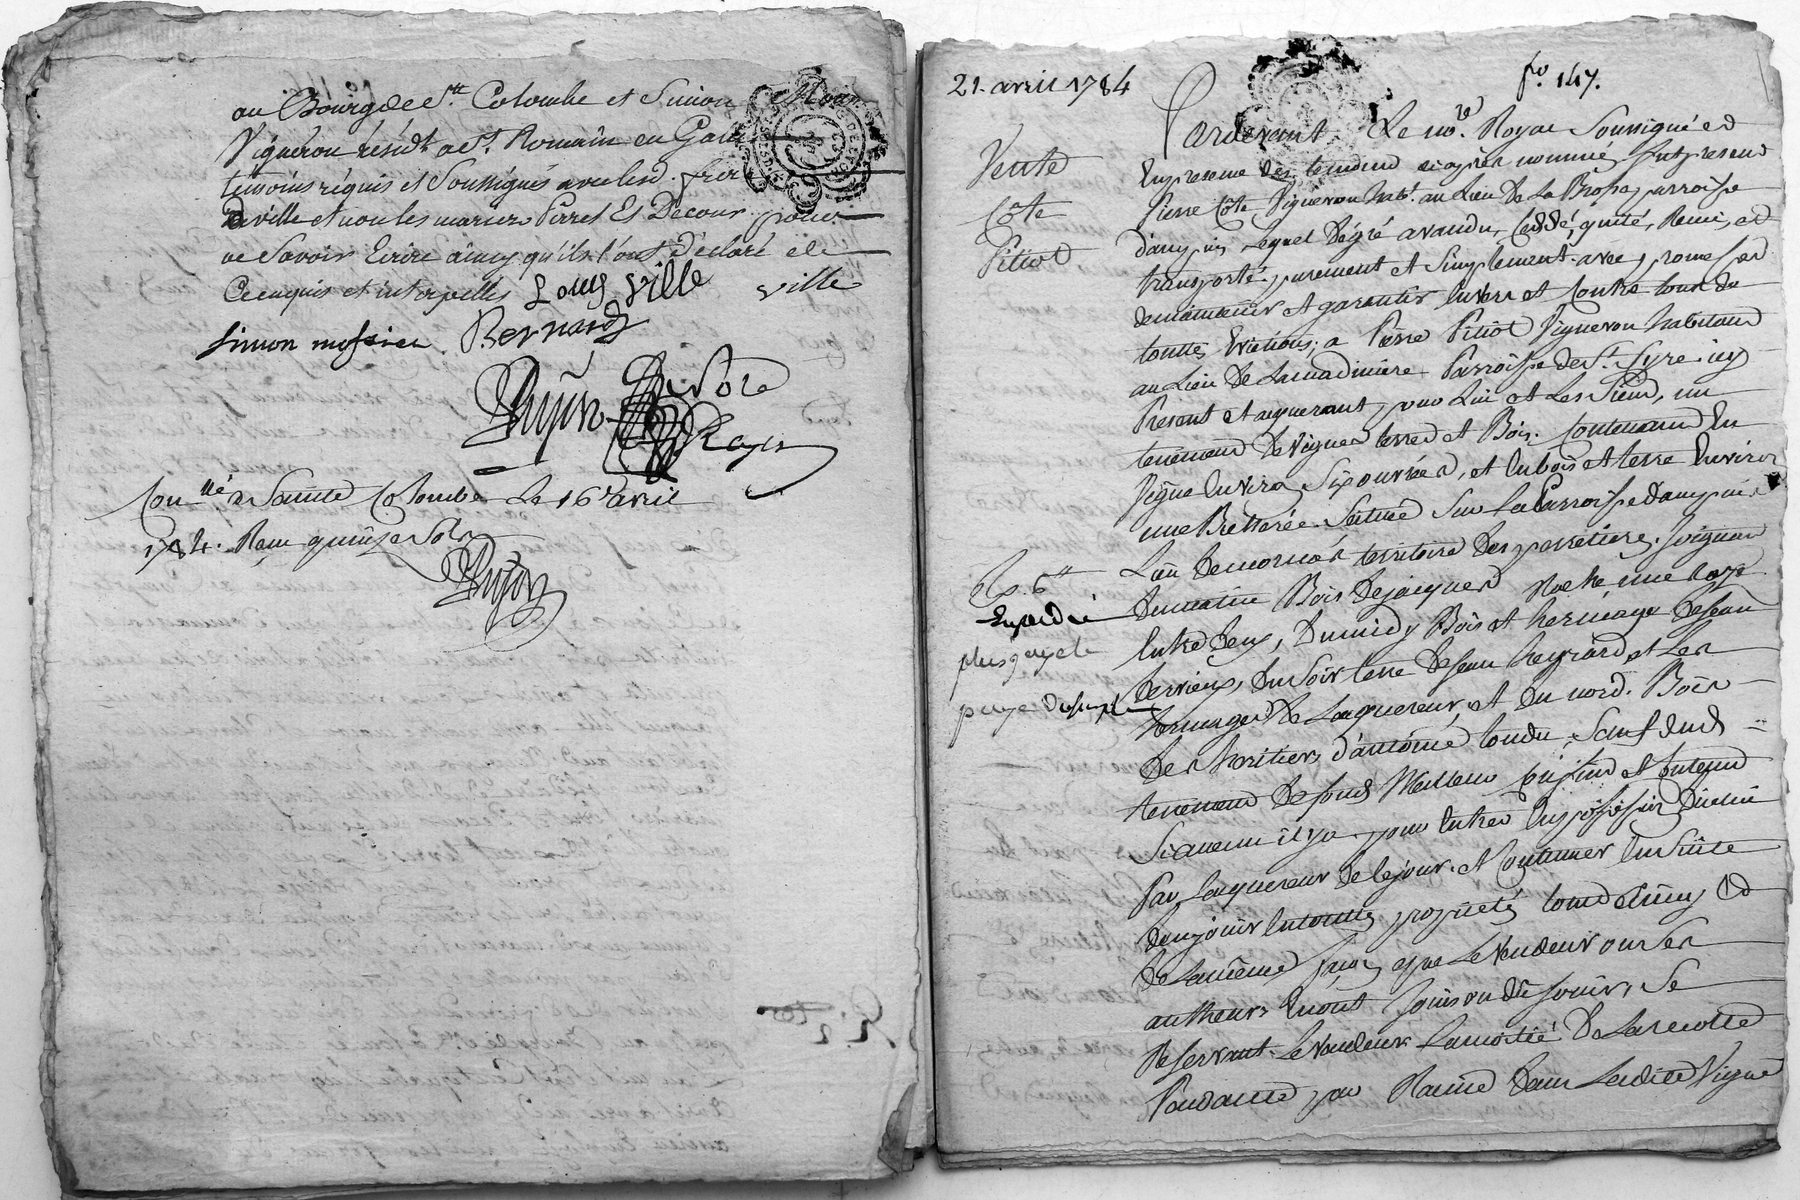 au Bourg de Ste. Colombe et Simon
Vigneron résidt. a St. Romain en Gal
temoins réquis et Soussignés avec lesd. frer
Deville et non les mariez Pirret Et Decour pour
ne Savoir Ecrire ainsy qu'ils l'ont Déclaré de
Ce enquis et interpellés Louis ville ville
Simon Bernard
Con.llé a Sainte Colombe Le 16e avril
1784. Reçu quinze Sols
21. avril 1784
fo. 147.
Vente
Côte
Pitiot
Pardevant Le no.re Royal Soussigné et
En presence des temoins cy après nommés fut present
Pierre Côte Vigneron habt. au Lieu De La Brosse parroisse
d'ampuis Lequel De gré a vendu, Ceddé, quité, Remis, et
transporté purement et Simplement avec promesse
de maintenir et garentir Envers et Contre tous de
touttes Evictions; a Pierre Pitiot Vigneron habitant
au Lieu De Lamadiniere Parroisse de St. Cyre icy
Present et aquerant pour Lui et Les Siens, un
tenement De vignes terres et Bois. Contenant En
Vigne Environ Six ouvrées, et En bois et terre Environ
une Bicherée Situés Sur La Parroisse d'ampuis
Lieu De territoire Des Joignant
Du matin Bois De jacques Roche une
Entre Deux, Du midy Bois et hermage De Jean
Dervieux, Du Soir terre De Jean et Les
hermages De Laquereur, et Du nord. Bois
Des heritiers d'antoine tondu, Sauf dud.
tenement De fonds Meilleurs Confins et Contenu
Si aucun il y a pour Entrer En possession D'icelui
Par Laquereur De Ce jour. et Continuer En Suite
D'en jouir En toutte propriété tout ainsy Et
De La même façon que Le Vendeur ou Ses
autheurs En ont Jouis ou Dû Jouir, Se
Reservant Le Vendeur La moitié De La recolte
Pendante par Racine Dans Ladite Vigne
Exp. 6
Expedié